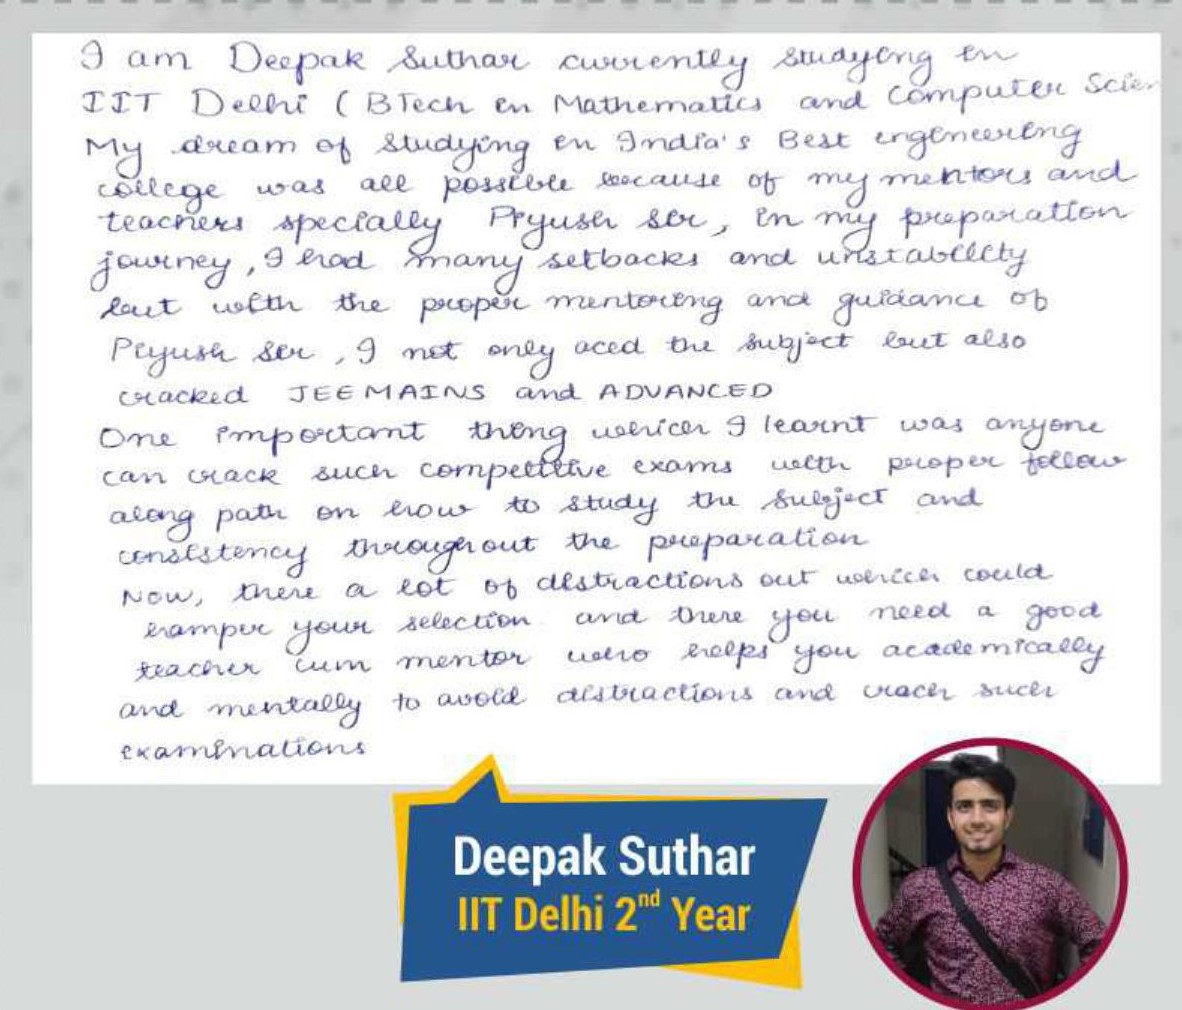 I am Deepak Suthar currently studying in
IIT Delhi ( BTech in Mathematics and Computer Scien
My dream of studying in India's Best engineering
college was all possible because of my mentors and
teachers specially Piyush sir, in my preparation
journey, I had many setbacks and unstability
but with the proper mentoring and guidance of
Piyush sir, I not only aced the subject but also
cracked JEE MAINS and ADVANCED
One important thing which I learnt was anyone
can crack such competitive exams with proper follow
along path on how to study the subject and
consistency throughout the preparation
Now, there a lot of distractions out which could
hamper your selection and there you need a good
teacher cum mentor who helps you academically
and mentally to avoid distractions and crack such
examinations
Deepak Suthar
IIT Delhi 2nd Year